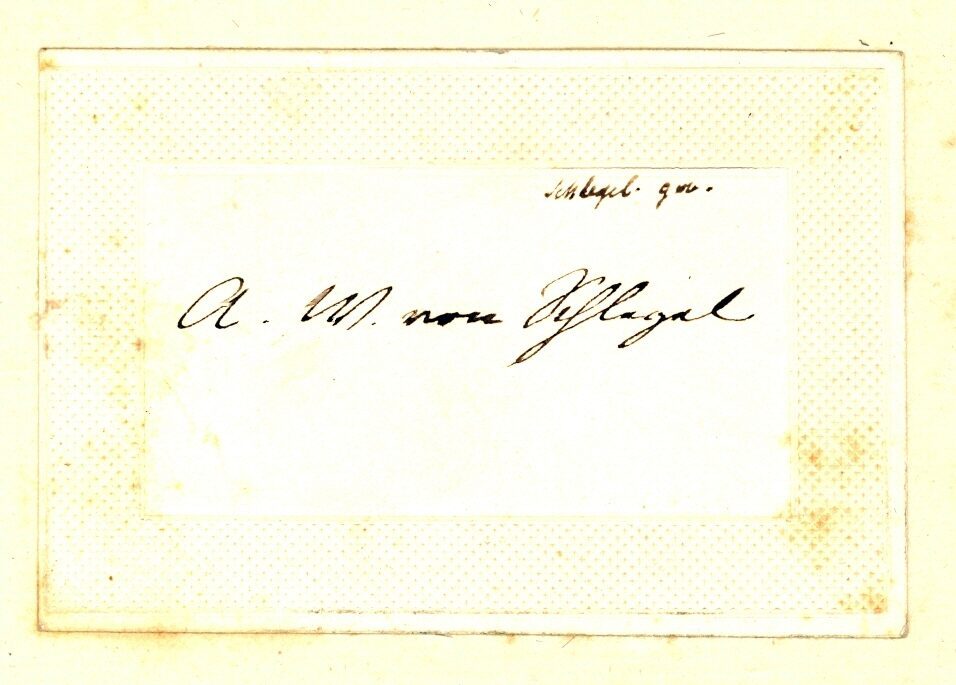 Schlegel.
A. W. von Schlegel